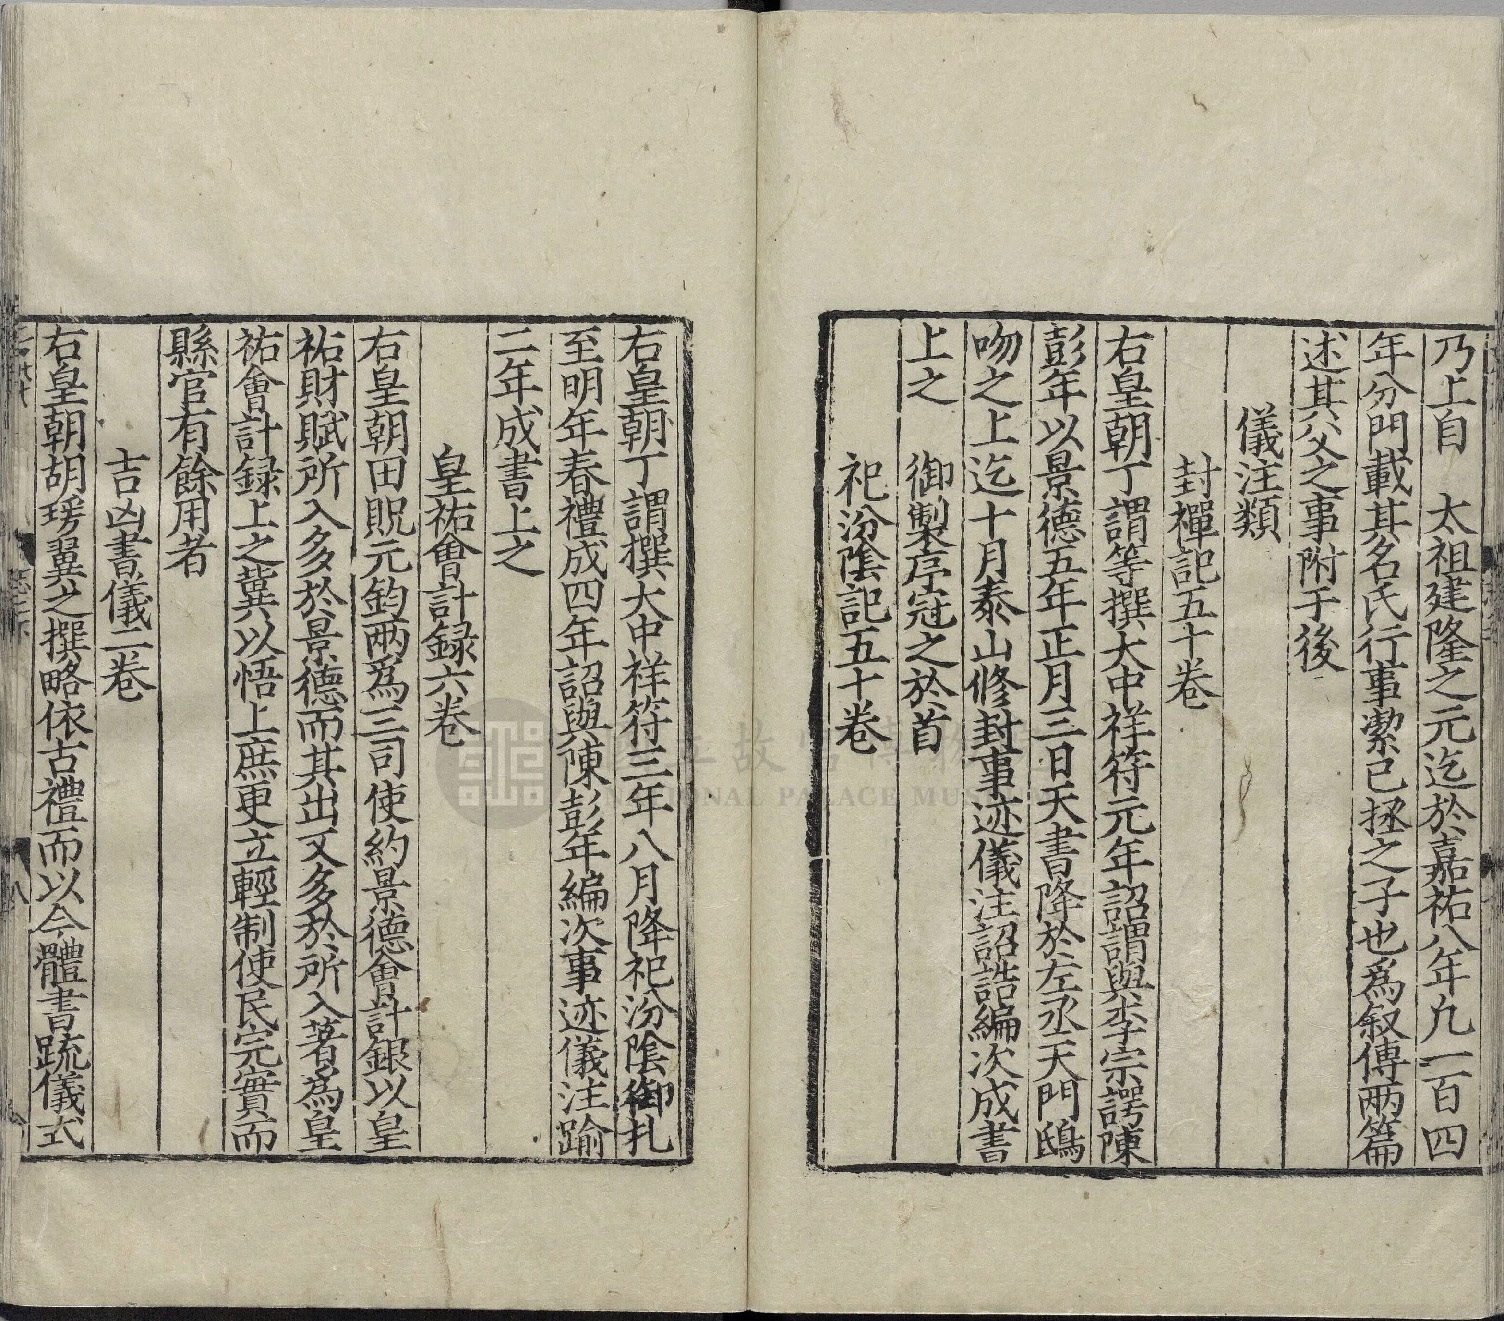 乃上自　太祖建隆之元迄於嘉祐八年九一百四
年分門載其名氏行事潔己拯之子也為叙傳兩篇
述其六父之事附于後
儀注類
封禪記五十卷
右皇朝丁謂等撰大中祥符元年詔謂與李宗諤陳
彭年以景德五年正月三日天書降於左丞天門鴟
吻之上迄十月泰山修封事迹儀注詔誥編次成書
上之　御製序冠之於首
祀汾陰記五十卷
右皇朝丁謂撰大中祥符三年八月降祀汾陰御扎
至明年春禮成四年詔與陳彭年編次事迹儀注踰
二年成書上之
皇祐會計録六卷
右皇朝田貺元鈞兩為三司使約景德會計銀以皇
祐財賦所入多於景德而其出又多於所入著為皇
祐會計録上之冀以悟上庶更立輕制使民完實而
縣官有餘用者
吉凶書儀二卷
右皇朝胡瑗翼之撰略依古禮而以今體書疏儀式
國立故宮博物院
NATIONAL PALACE MUSEUM
八